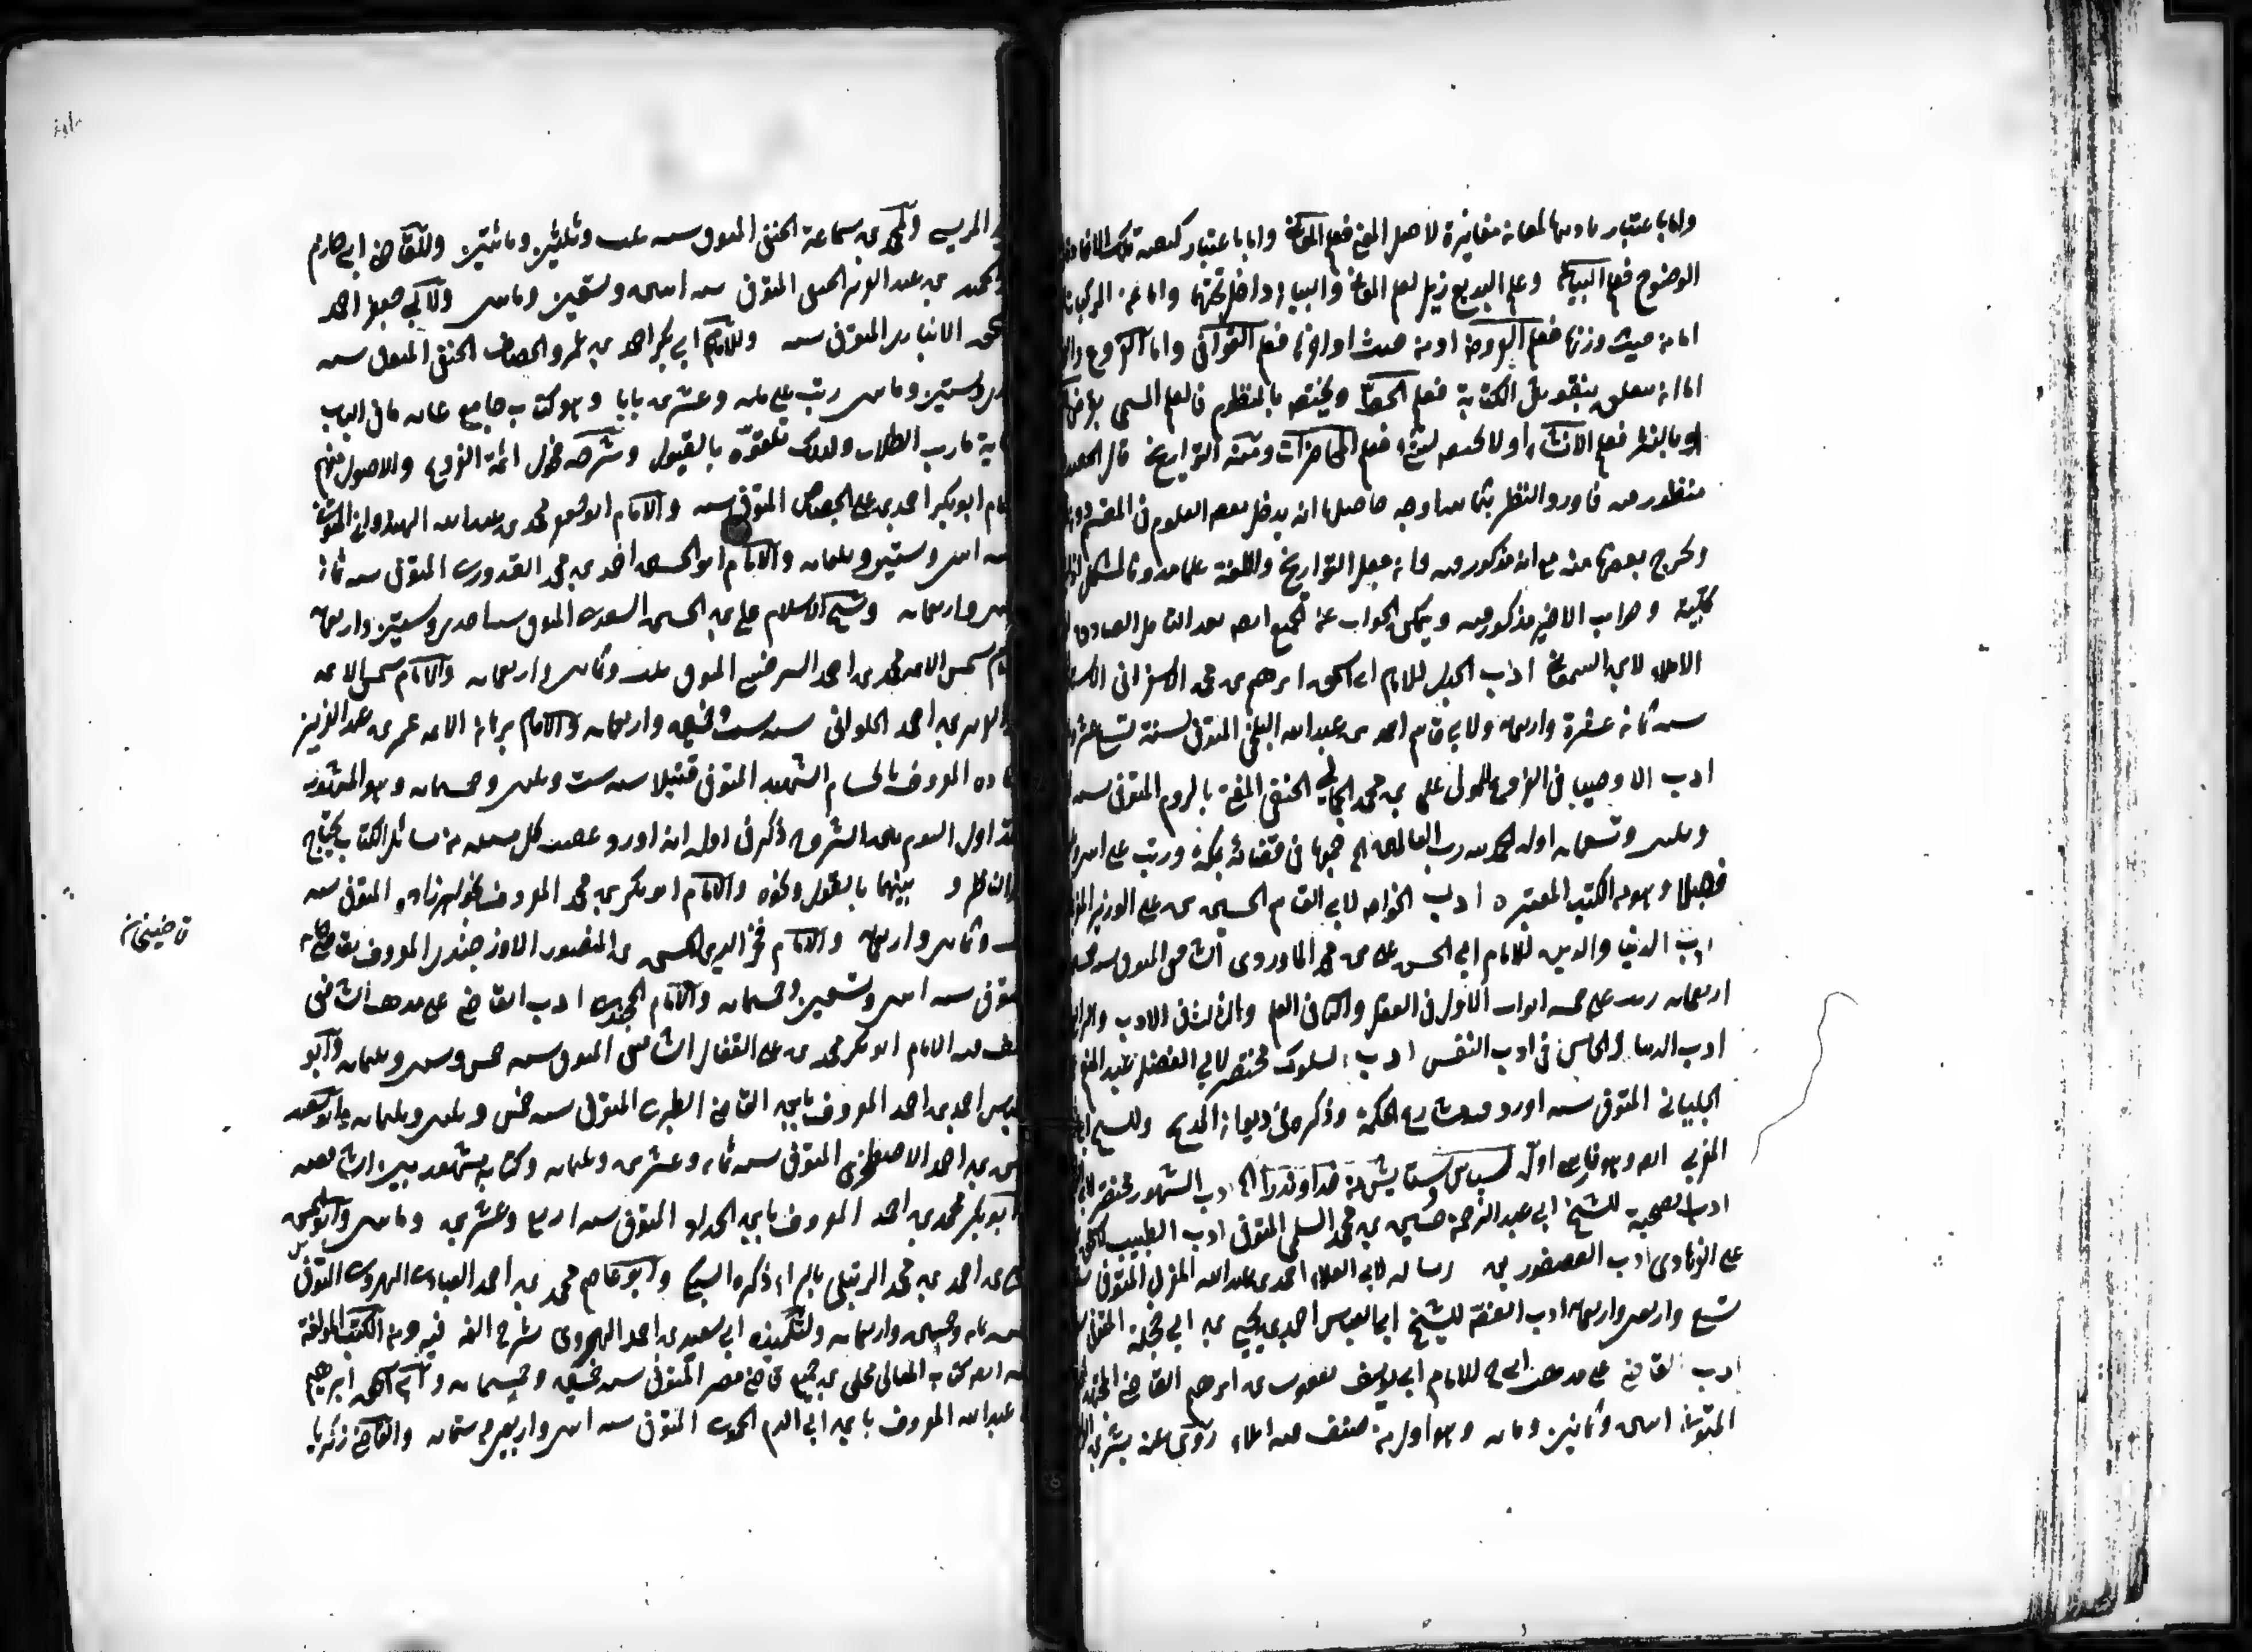 واما باعتبار افادتها لمعان مغايرة لاصل المعنى فعلم المعانى واما باعتبار كيفية تلك الافادة
الوضوح فعلم البيان وعلم البديع ذيل لعلم المعانى والبيان داخل تحتهما واما عن المركبات
اما من حيث وزنها فعلم العروض او من حيث اواخرها فعلم القوافى واما الفروع
اما ان يتعلق بنقوش الكتابة فعلم الخط ويختص بالمنظوم فالعلم المسمى بقرض
او بالنثر فعلم الانشاء او لا يختص بشئ فعلم المحاضرات ومنه التواريخ قال الحفيد
منظور فيه فاورد النظر بثمانية اوجه حاصلها انه يدخل بعض العلوم فى المقسم دون
ويخرج بعضها منه مع انه مذكور فيه وانه جعل التواريخ واللغة علما مدونا لمشكل
كلية وجواب الاخير مذكور فيه ويمكن الجواب عن الجميع ايضا بعد التأمل الصادق
الاملاء لابن السمعانى ادب الجدل للامام ابى اسحق ابرهيم بن محمد الاسفراينى
سنة ثمان عشرة واربعمائة ولابى قاسم احمد بن عبد الله البلخى المتوفى سنة تسع عشرة
ادب الاوصيا فى الفروع للمولى على بن محمد الجمالى الحنفى المفتى بالروم المتوفى سنة
وثلثين وتسعمائة اوله الحمد لله رب العالمين الخ جمعها فى قضائه بمكة ورتب على اثنين
فصلا وهو من الكتب المعتبرة ادب الخواص لابى القاسم الحسين بن على الوزير
ادب الدنيا والدين للامام ابى الحسن على بن محمد الماوردى الشافعى المتوفى سنة
اربعمائة رتب على خمسة ابواب الاول فى العقل والثانى فى العلم والثالث فى الادب والرابع
ادب الدنيا والخامس فى ادب النفس ادب السلوك مختصر لابى الفضل عبد المنعم
الجليانى المتوفى سنة اورد فيه مشارع الحكمة وذكره فى ديوان المدبج وللشيخ
المغربى ايضا وهو فارسى اوله سپاس وستايش مر خداوندرا الخ ادب الشهود مختصر
ادب الصحبة للشيخ ابى عبد الرحمن حسين بن محمد السلمى المتوفى ادب الطبيب لاسحق بن
على الرهاوى ادب العصفورين رسالة لابى العلاء احمد بن عبد الله المعرى المتوفى سنة
تسع واربعين واربعمائة ادب الغضة للشيخ ابى العباس احمد بن يحيى بن ابى حجلة المتوفى
ادب القاضى على مذهب ابى ح للامام ابى يوسف يعقوب بن ابرهيم القاضى المجتهد
المتوفى سنة اثنين وثمانين ومائة وهو اول من صنف فيه املاء روى عنه بشر بن
المريسى ولمحمد بن سماعة الحنفى المتوفى سنة ثلث وثلثين ومائتين وللقاضى ابى حازم
عبد الحميد بن عبد العزيز الحنفى المتوفى سنة اثنين وتسعين ومائتين ولابى جعفر احمد
اسحق الانبارى المتوفى سنة وللامام ابى بكر احمد بن عمرو الخصاف الحنفى المتوفى سنة
احدى وستين ومائتين رتب على مائة وعشرين بابا وهو كتاب جامع غاية ما فى الباب
نهاية مآرب الطلاب ولذلك تلقوه بالقبول وشرحه فحول ائمة الفروع والاصول منهم
الامام ابو بكر احمد بن على الجصاص المتوفى سنة والامام ابو جعفر محمد بن عبد الله الهندوانى المتوفى
سنة اثنين وستين وثلثمائة والامام ابو الحسين احمد بن محمد القدورى المتوفى سنة ثمان
وعشرين واربعمائة وشيخ الاسلام على بن الحسين السغدى المتوفى سنة احدى وستين واربعمائة
والامام شمس الائمة محمد بن احمد السرخسى المتوفى سنة ثلث وثمانين واربعمائة والامام شمس الائمة
عبد العزيز بن احمد الحلوانى سنة ست وخمسين واربعمائة والامام برهان الائمة عمر بن عبد العزيز
مازه المعروف بالحسام الشهيد المتوفى قتيلا سنة ست وثلثين وخمسمائة وهو المشهور
المتداول اليوم من بين الشروح ذكر فى اوله انه اورد عقيب كل مسئلة من مسائل الكتاب يحتاج
الناظر و بينهما بالقول ونحوه والامام ابو بكر بن محمد المعروف بخواهرزاده المتوفى سنة
وثمانين واربعمائة والامام فخر الدين الحسن بن المنصور الاوزجندى المعروف بقاضى خان
المتوفى سنة اثنين وتسعين وخمسمائة والامام الخجندى ادب القاضى على مذهب الشافعى
صنف فيه الامام ابو بكر محمد بن على القفال الشاشى المتوفى سنة خمس وستين وثلثمائة وابو
العباس احمد بن احمد المعروف بابن القاص الطبرى المتوفى سنة خمس وثلثين وثلثمائة وابو سعيد
الحسن بن احمد الاصطخرى المتوفى سنة ثمان وعشرين وثلثمائة وكتابه مشهور بين الشافعية
وابو بكر محمد بن احمد المعروف بابن الحداد المتوفى سنة اربع وعشرين ومائتين وابو الحسن
على بن احمد بن محمد الزبيلى بالراء ذكره السبكى وابو عاصم محمد بن احمد العبادى الهروى المتوفى
سنة ثمان وخمسين واربعمائة ولتلميذه ابى سعيد بن احمد الهروى شرح الفه فيه ومن الكتب المؤلفة
فيه ايضا كتاب ابى المعالى مجلى بن جميع قاضى مصر المتوفى سنة خمسين وخمسمائة وابى اسحق ابرهيم
عبد الله المعروف بابن ابى الدم الحموى المتوفى سنة اثنين واربعين وستمائة والقاضى زكريا
قاضيخان